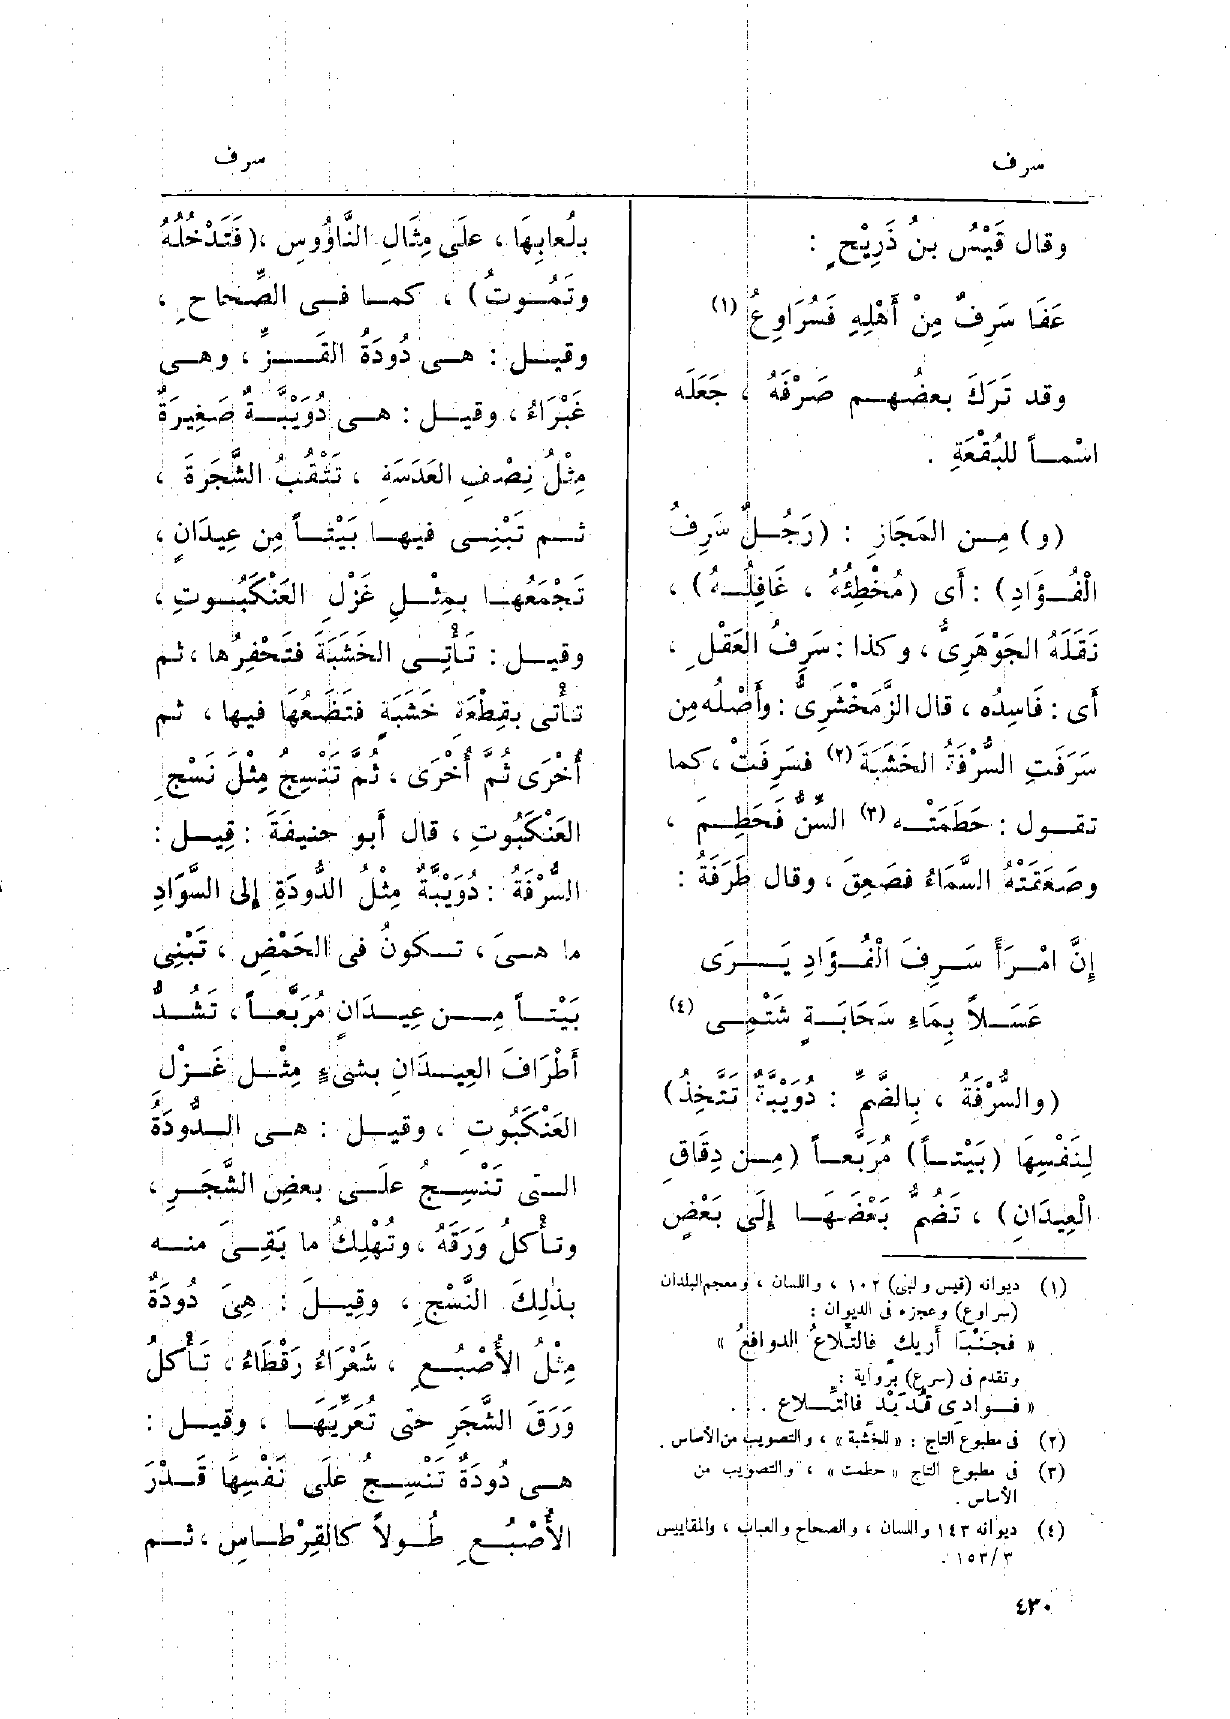 سرف
سرف
وقال قَيْسُ بنُ ذَرِيْحٍ :
عَفَا سَرِفٌ مِنْ أَهْلِهِ فَسُرَاوِعُ (١)
وقد تَرَكَ بعضُهم صَرْفَهُ ، جَعَلَه
اسْماً للبُقْعَةِ .
(و) مِن المَجَازِ : (رَجُلٌ سَرِفُ
الْفُؤَادِ) : أى (مُخْطِئُهُ ، غَافِلُهُ) ،
نَقَلَهُ الجَوْهَرِىُّ ، وكذا : سَرِفُ العَقْلِ ،
أى : فَاسِدُه ، قال الزَّمَخْشَرِىُّ : وأَصْلُه مِن
سَرَفَتِ السُّرْفَةُ الخَشَبَةَ (٢) فسَرِفَتْ ، كما
تقول : حَطَمَتْه (٣) السِّنُّ فَحَطِمَ ،
وصَعَقَتْهُ السَّمَاءُ فصَعِقَ ، وقال طَرَفَةُ :
إِنَّ امْرَأً سَرِفَ الْفُؤَادِ يَرَى
عَسَلاً بِمَاءِ سَحَابَةٍ شَتْمِى (٤)
(والسُّرْفَةُ ، بِالضَّمِّ : دُوَيْبَّةٌ تَتَّخِذُ)
لِنَفْسِهَا (بَيْتاً) مُرَبَّعاً (مِن دِقَاقِ
الْعِيدَانِ) ، تَضُمُّ بَعْضَهَا إِلَى بَعْضٍ
(١) ديوانه (قيس ولبنى) ١٠٢ ، واللسان ، ومعجم البلدان
(سراوع) وعجزه فى الديوان :
« فجَنْبَا أَريكٍ فالتِّلاعُ الدوافعُ »
وتقدم فى (سرع) برواية :
« فوادِى قُدَيْد فالتلاع . .
(٢) فى مطبوع التاج : « للخشبة » ، والتصويب من الأساس .
(٣) فى مطبوع التاج « حطمت » ، والتصويب من
الأساس .
(٤) ديوانه ١٤٣ واللسان ، والصحاح والعباب ، والمقاييس
٣ / ١٥٣ .
بلُعابِهَا ، علَى مِثَالِ النَّاؤُوسِ ، (فَتَدْخُلُهُ
وتَمُوتُ) ، كما فى الصِّحاحِ ،
وقيل : هى دُودَةُ القَزِّ ، وهى
غَبْرَاءُ ، وقيل : هى دُوَيْبَّةٌ صَغِيرَةٌ
مِثْلُ نِصْفِ العَدَسَةِ ، تَثْقُبُ الشَّجَرةَ ،
ثم تَبْنِى فيها بَيْتاً مِن عِيدَانٍ ،
تَجْمَعُهَا بمِثْلِ غَزْلِ العَنْكَبُوتِ ،
وقيل : تَأْتِى الخَشَبَةَ فتَحْفِرُها ، ثم
تأْتى بقِطْعَةِ خَشَبَةٍ فتَضَعُهَا فيها ، ثم
أُخْرَى ثُمَّ أُخْرَى ، ثُمَّ تَنْسِجُ مِثْلَ نَسْجِ
العَنْكَبُوتِ ، قال أبو حنيفَةَ : قِيل :
السُّرْفَةُ : دُوَيْبَّةٌ مِثْلُ الدُّودَةِ إلى السَّوَادِ
ما هىَ ، تكونُ فى الحَمْضِ ، تَبْنِى
بَيْتاً مِن عِيدَانٍ مُرَبَّعاً ، تَشُدُّ
أَطْرَافَ العِيدَانِ بشىءٍ مِثْل غَزْلِ
العَنْكَبُوتِ ، وقيل : هى الدُّودَةُ
التى تَنْسِجُ علَى بعضِ الشَّجَرِ ،
وتأْكلُ وَرَقَهُ ، وتُهْلِكُ ما بَقِىَ منه
بذٰلِكَ النَّسْجِ ، وقِيلَ : هِىَ دُودَةٌ
مِثْلُ الأُصْبُعِ ، شَعْرَاءُ رَقْطَاءُ ، تَأْكلُ
وَرَقَ الشَّجَرِ حتى تُعَرِّيَهَا ، وقيل :
هى دُودَةٌ تَنْسِجُ علَى نَفْسِهَا قَدْرَ
الأُصْبُعِ طُولاً كالقِرْطاسِ ، ثم
٤٣٠